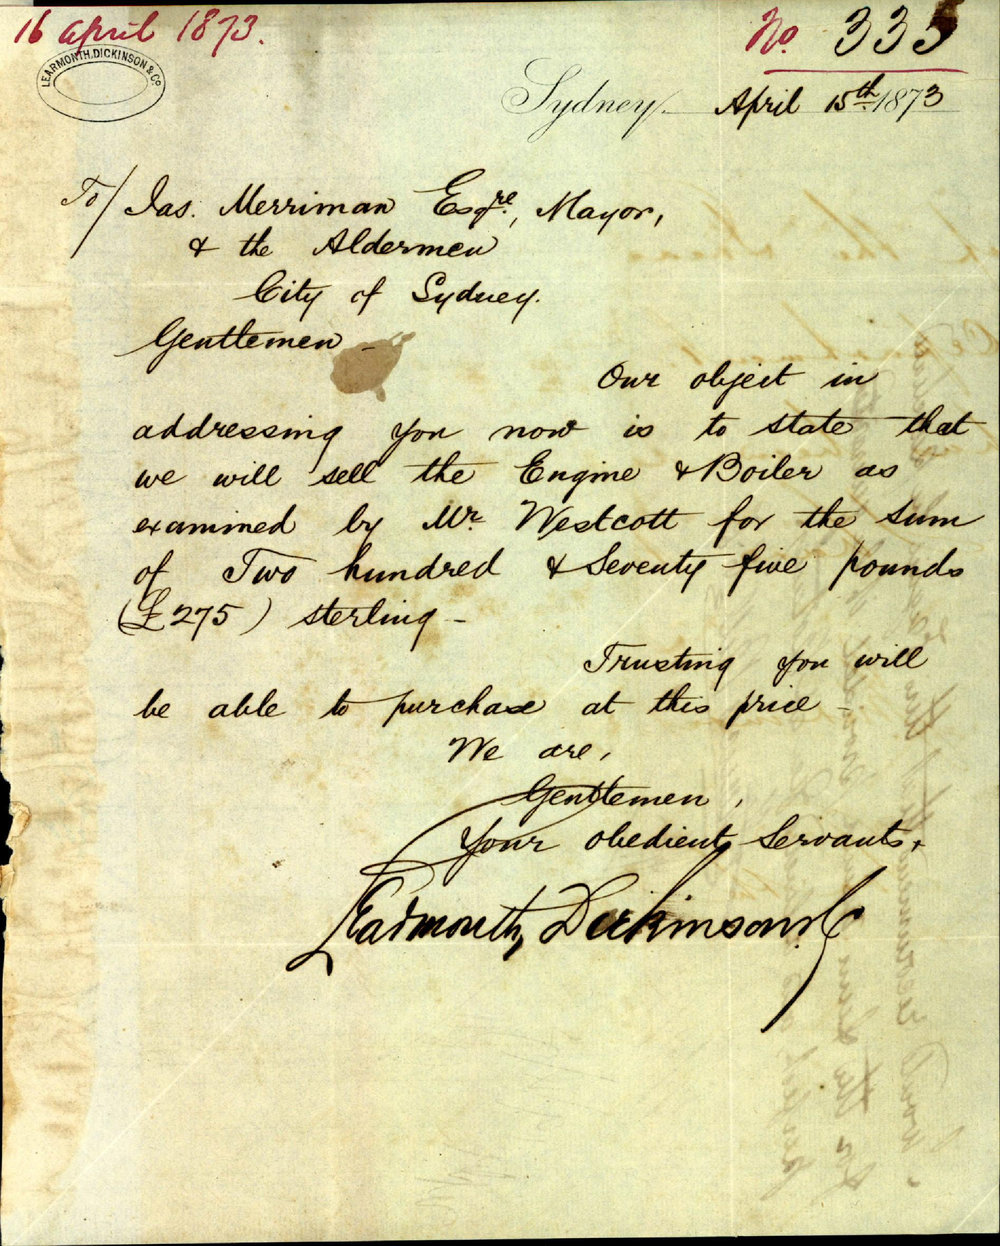 16 April 1873.
No. 335
LEARMONTH, DICKINSON & Co.
Sydney April 15th 1873
To/ Jas. Merriman Esqre, Mayor,
& the Aldermen
City of Sydney.
Gentlemen -
Our object in
addressing you now is to state that
we will sell the Engine & Boiler as
examined by Mr Westcott for the sum
of Two hundred & Seventy five pounds
(£275) sterling -
Trusting you will
be able to purchase at this price -
We are,
Gentlemen,
Your obedient Servants,
Learmonth, Dickinson & Co